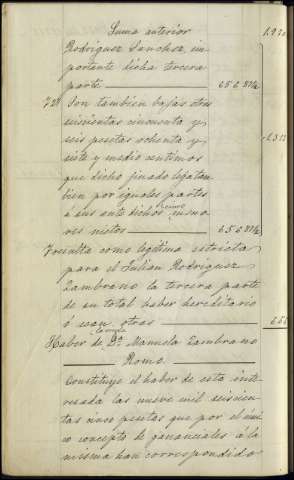 Suma anterior
1.970
Rodriguez Sanchez, im-
portante dicha tercera
parte 656 87½
7ª Son tambien bajas otras
seiscientas cincuenta y
seis pesetas ochenta y
siete y medio centimos
que dicho finado legatan-
bien por iguales partes
á sus ante dichos meno-
res nietos 656 87½
1.313
Resulta como legítima estricta
para el Julian Rodriguez
Zambrano la tercera parte
de su total haber hereditario
ó sean otras
656
Haber de Dª Manuela Zambrano
Romo.
Constituye el haber de esta inte-
resada las nueve mil seiscien-
tas cinco pesetas que por el úni-
co concepto de gananciales á la
misma han correspondido